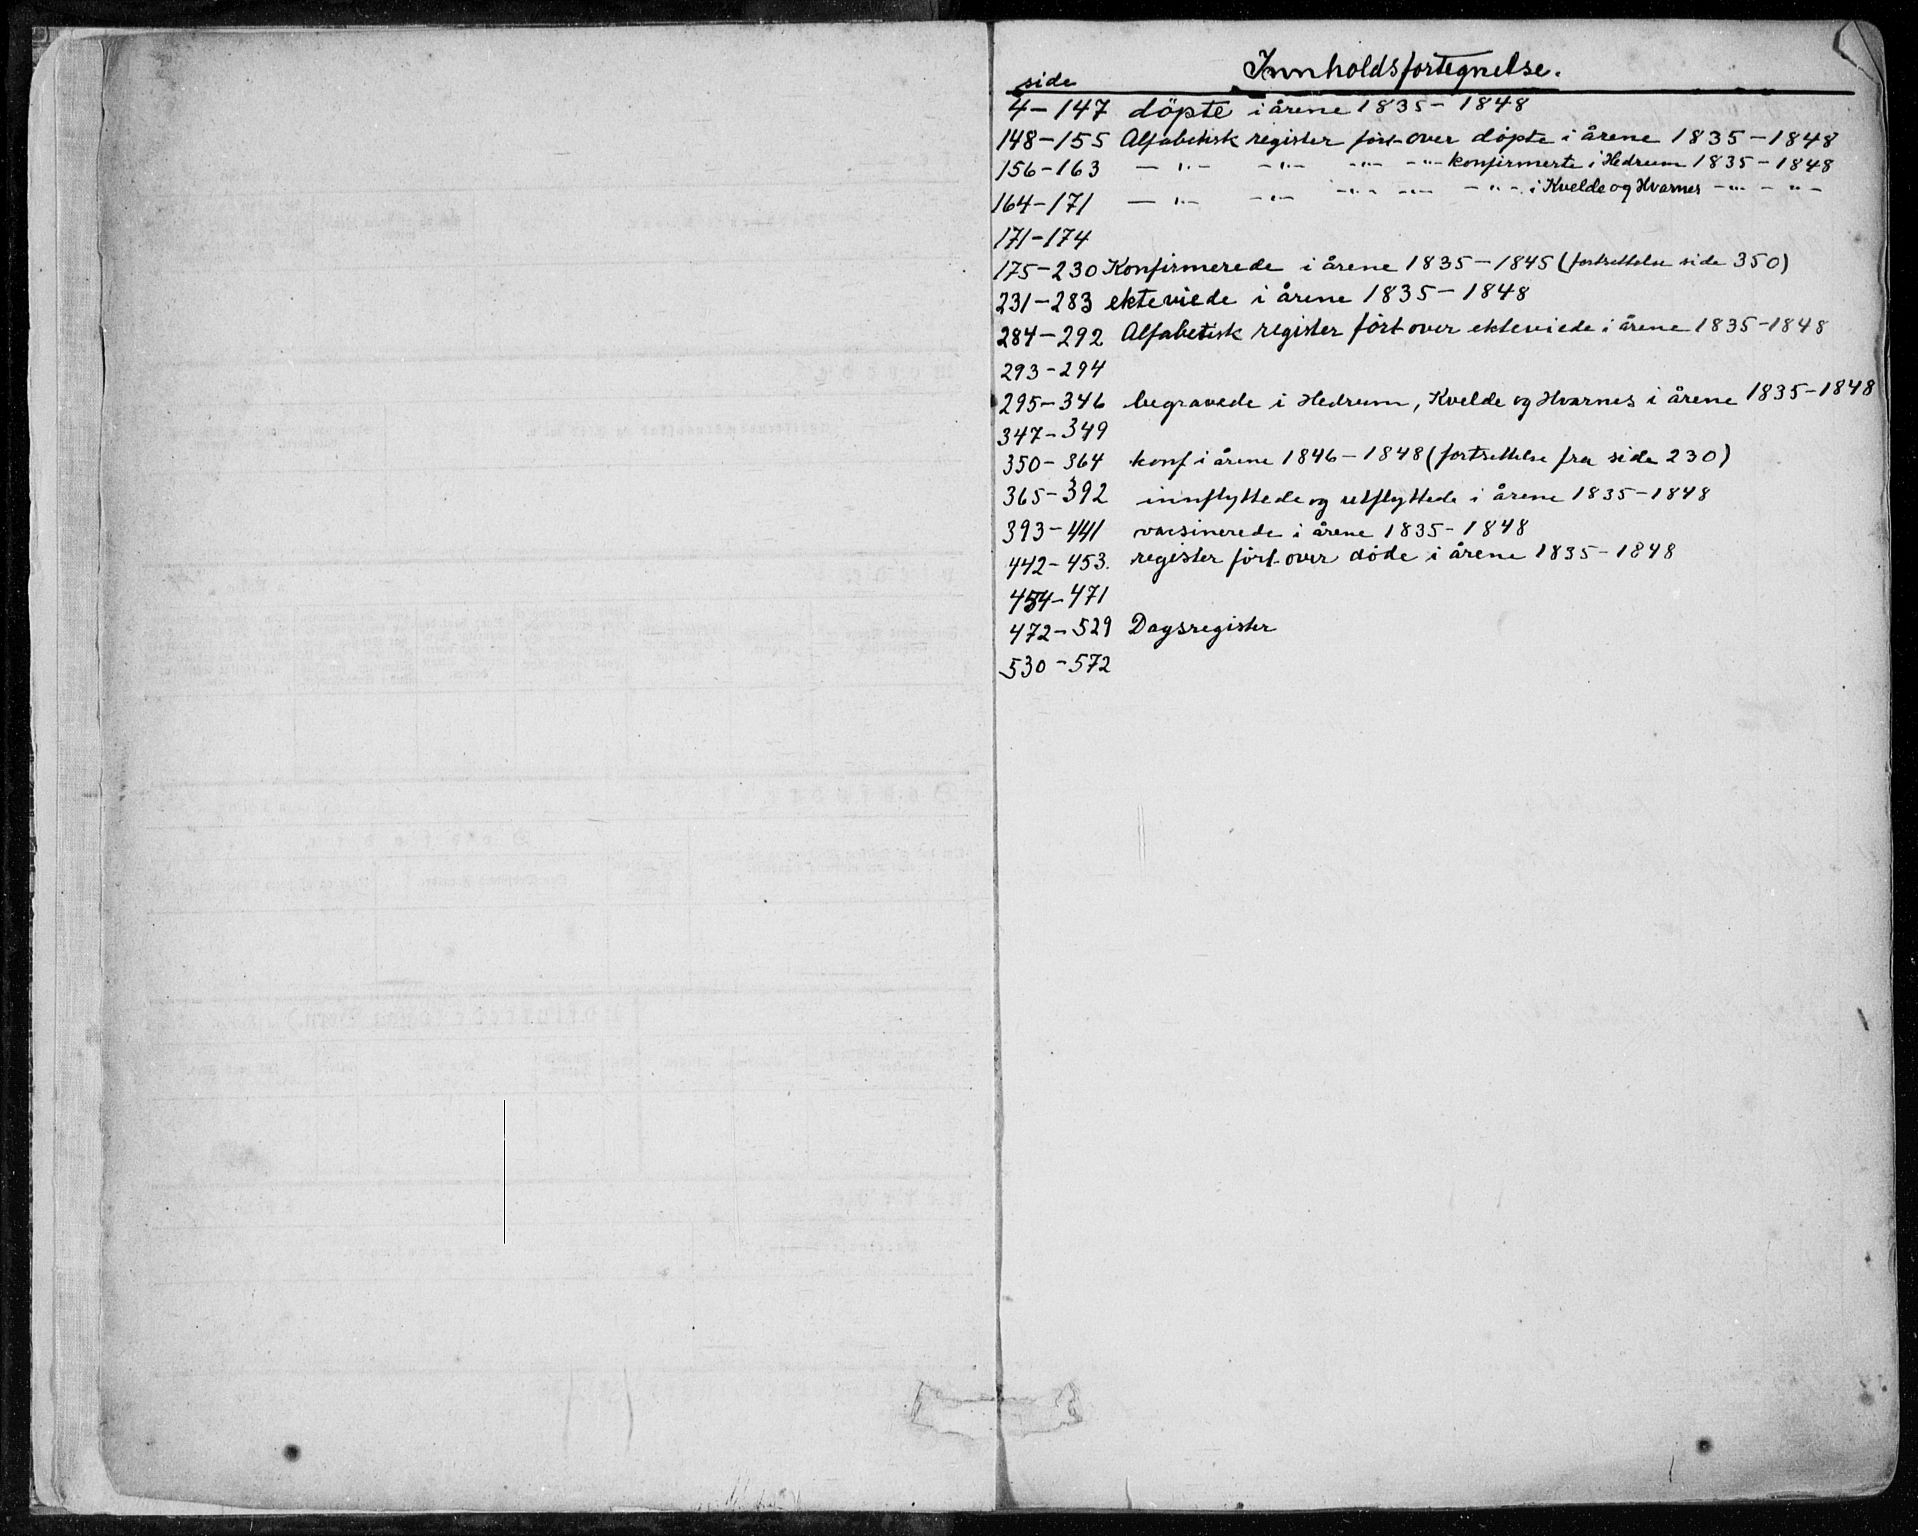 Innholdsfortegnelse.
side
4-147 döpte i årene 1835-1848
148-155 Alfabetisk register ført over døpte i årene 1835-1848
156-163 -"- -"- -"- -"- konfirmerte i Hedrum 1835-1848
164-171 -"- -"- -"- -"- -"- i Kvelde og Hvarnes -"- -"-
171-174
175-230 Konfirmerede i årene 1835-1845 (fortsettelse side 350)
231-283 ekteviede i årene 1835-1848
284-292 Alfabetisk register ført over ekteviede i årene 1835-1848
293-294
295-346 begravede i Hedrum, Kvelde og Hvarnes i årene 1835-1848
347-349
350-364 konf i årene 1846-1848 (fortsettelse fra side 230)
365-392 innflyttede og utflyttede i årene 1835-1848
393-441 vacsinerede i årene 1835-1848
442-453. register ført over døde i årene 1835-1848
454-471
472-529 Dagsregister
530-572